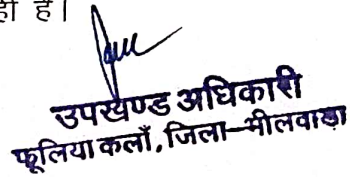 ही है।
उपखण्ड अधिकारी
फूलिया कलाँ, जिला-भीलवाड़ा